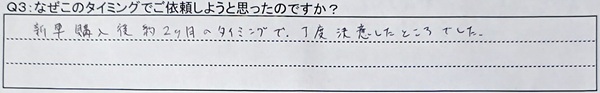 Q3:なぜこのタイミングでご依頼しようと思ったのですか?
新車購入後約2ヶ月のタイミングで、丁度決意したところでした。